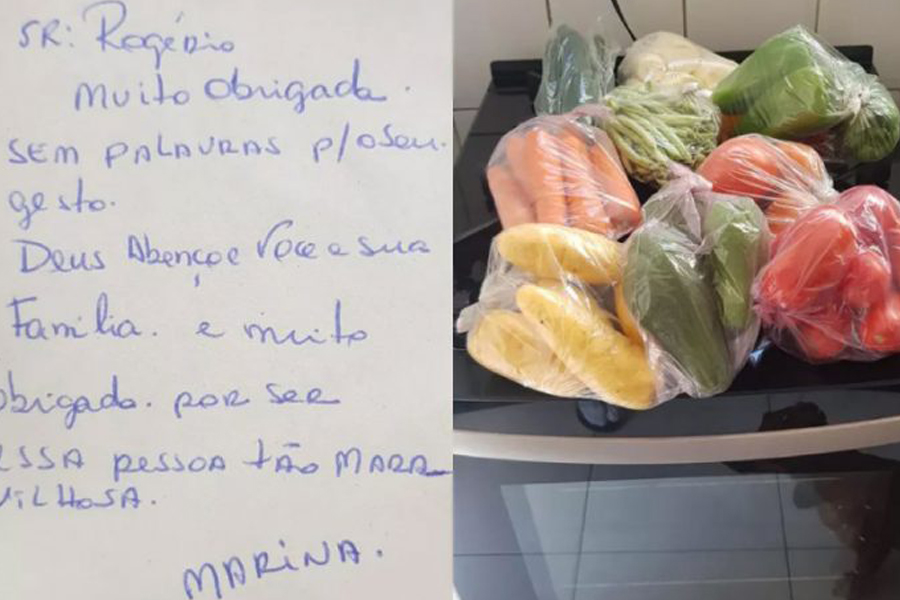 SR: Rogério
muito obrigada.
SEM PALAVRAS p/o seu.
gesto.
Deus Abençoe você e sua
Família. e muito
obrigada. por ser
ESSA pessoa tão MARA
VILHOSA.
MARINA.